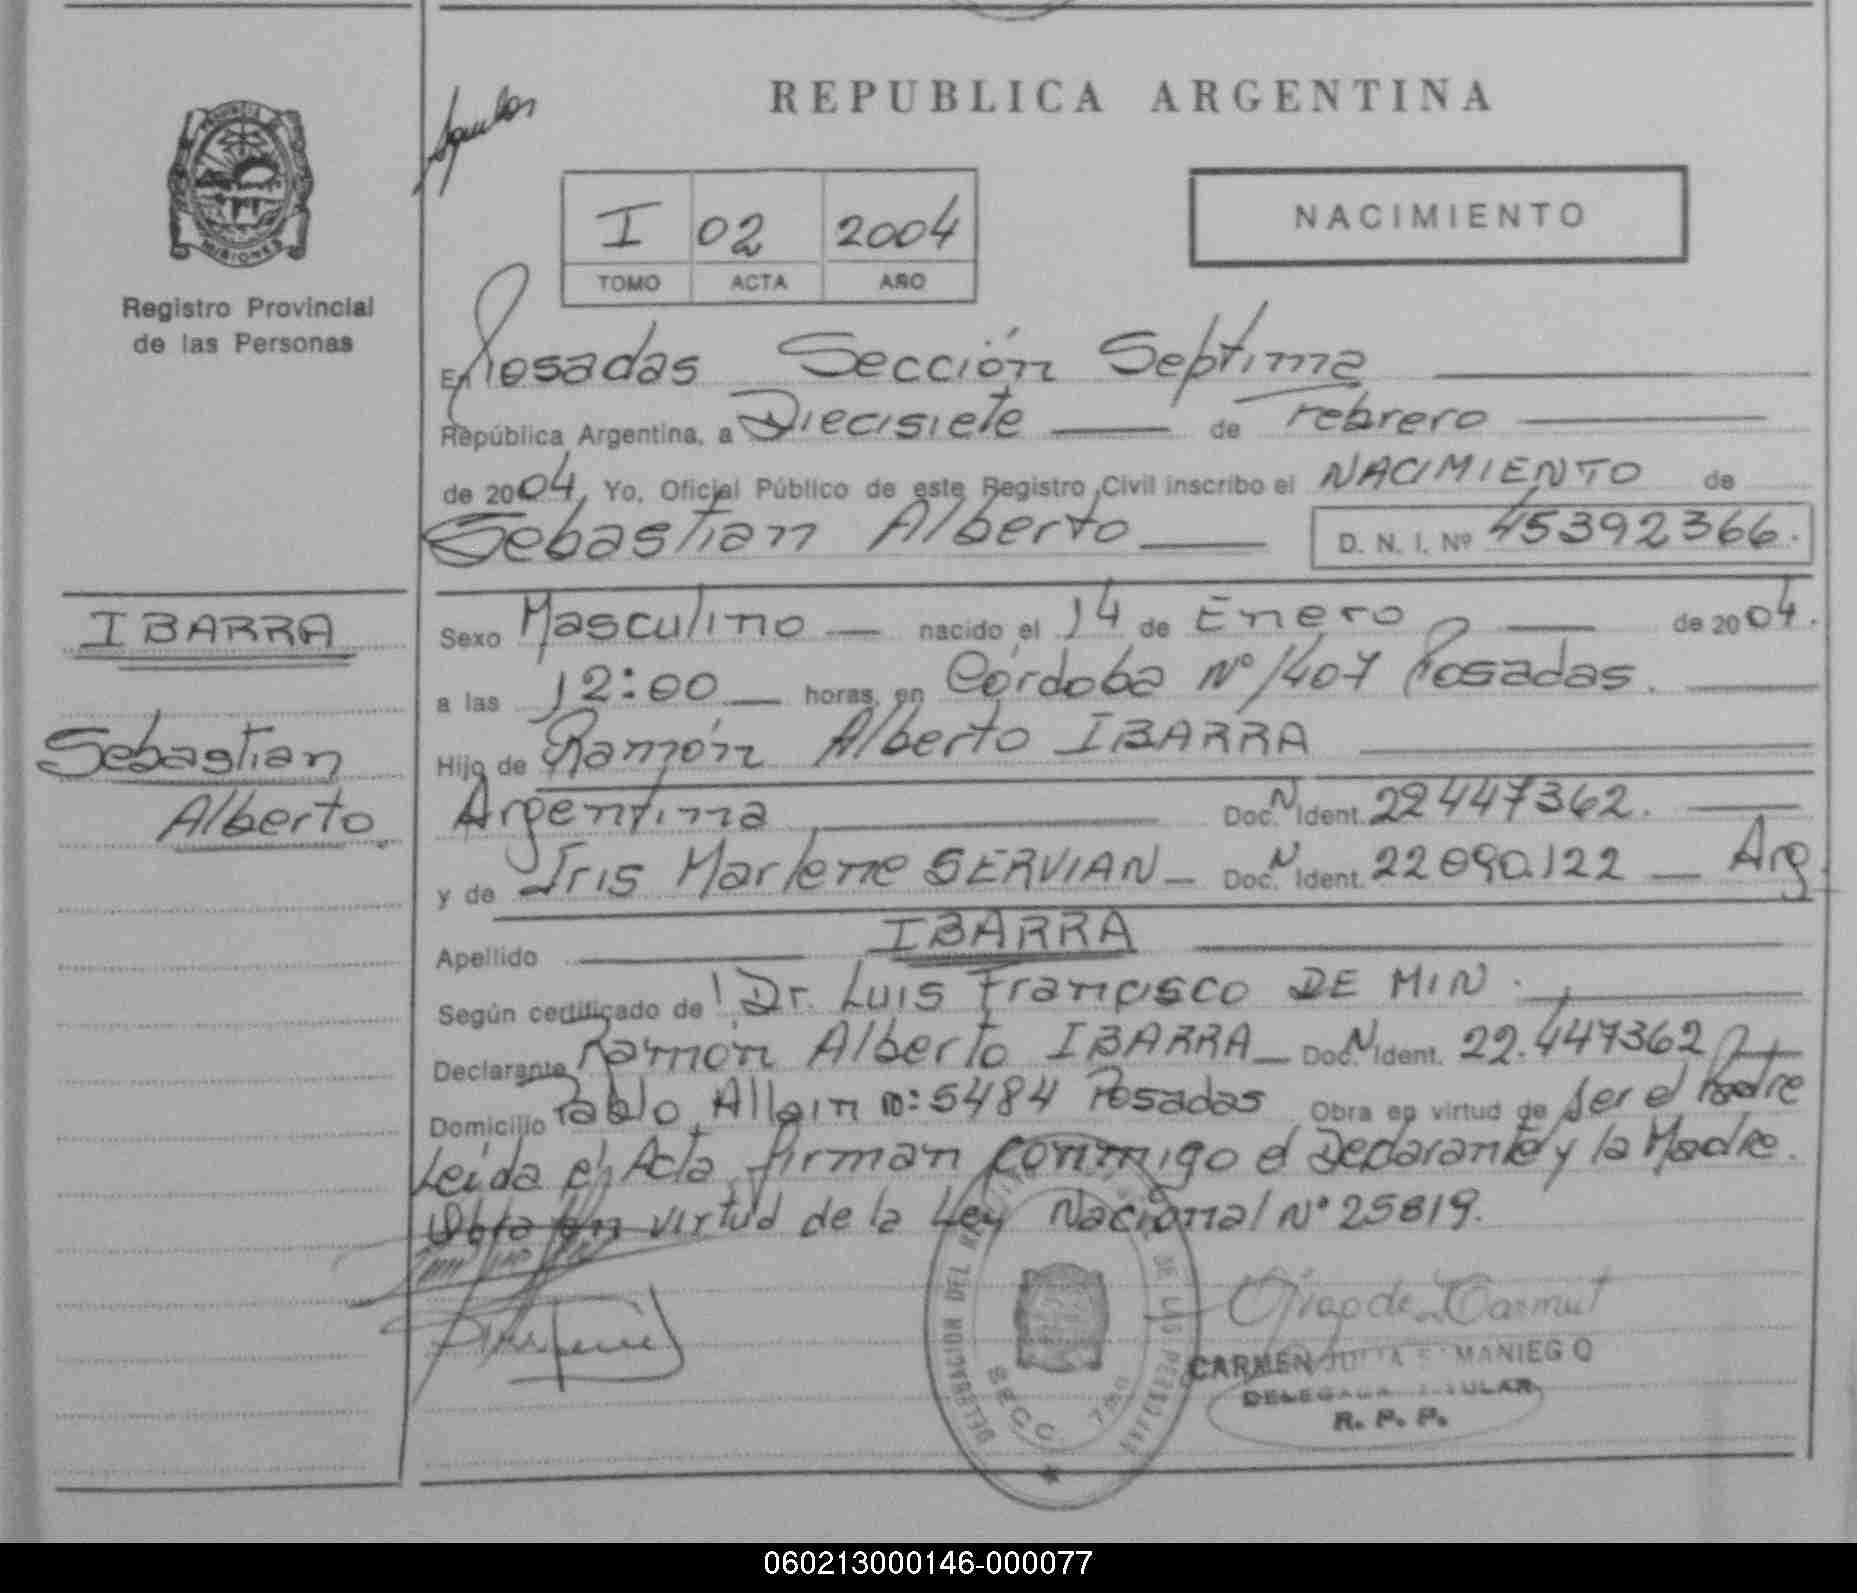 REPUBLICA ARGENTINA
PROVINCIA
MISIONES
Registro Provincial
de las Personas
I 02 2004
TOMO ACTA AÑO
NACIMIENTO
En Posadas Sección Septima
República Argentina, a Diecisiete de Febrero
de 2004, Yo, Oficial Público de este Registro Civil inscribo el NACIMIENTO de
Sebastian Alberto D. N. I. Nº 45392366.
IBARRA
Sebastian
Alberto.
Sexo Masculino nacido el 14 de Enero de 2004.
a las 12:00 horas, en Córdoba Nº 1407 Posadas.
Hijo de Ramón Alberto IBARRA
Argentina Doc. N Ident. 22447362.
y de Iris Marlene SERVIAN Doc. N Ident. 22090.122 Arg.
Apellido IBARRA
Según certificado de Dr. Luis Francisco DE MIN.
Declarante Ramón Alberto IBARRA Doc. N Ident. 22.447362
Domicilio Pablo Allain nº: 5484 Posadas Obra en virtud de Ser el Padre
Leída el Acta, firman conmigo el Declarante y la Madre.
Obra en virtud de la Ley Nacional Nº 25819.
DELEGACION DEL REGISTRO DE LAS PERSONAS
SECC 7MA
CARMEN JULIA SAMANIEGO
DELEGADA TITULAR
R. P. P.
060213000146-000077